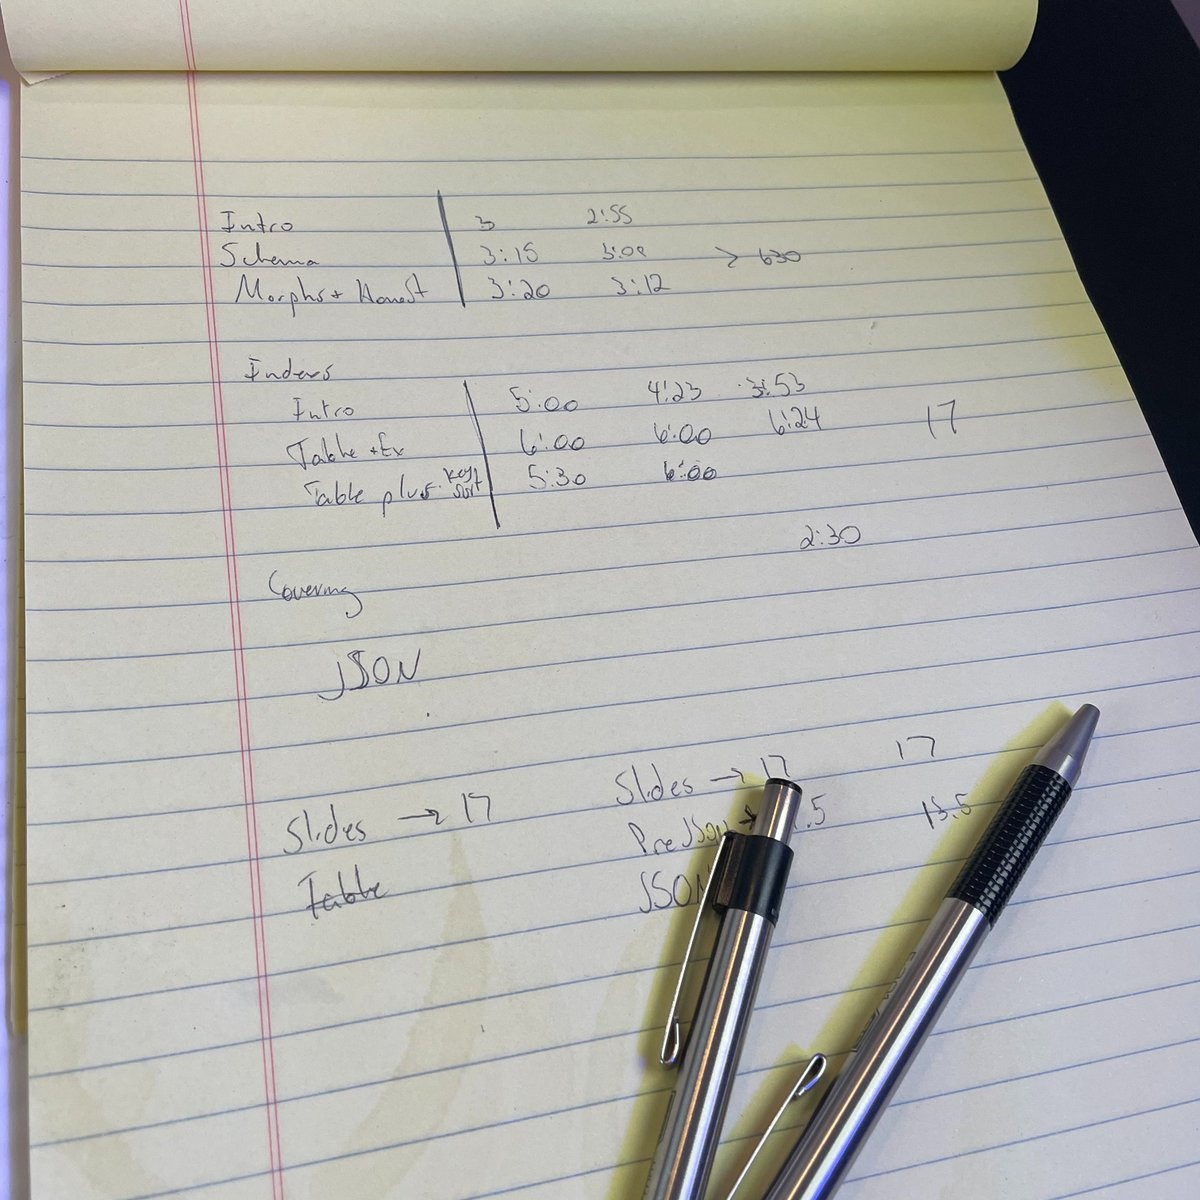 Intro 3 2:55
Schema 3:15 3:09 > 630
Morphs + Honest 3:20 3:12
Inders
Intro 5:00 4:23 3:53
Table + Ex 6:00 6:00 6:24 17
Table plus key sort 5:30 6:00
2:30
Covering
JSON
Slides → 17
Table
Slides → 17 17
Pre JSON → .5 13.5
JSON